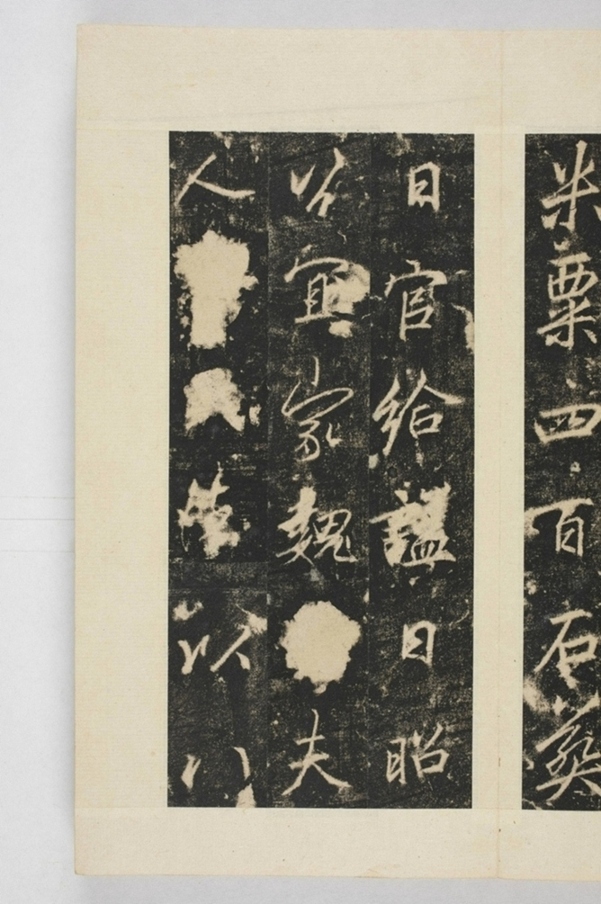 米粟四百石葬
日官給謚曰昭
公宜家魏夫
人以八